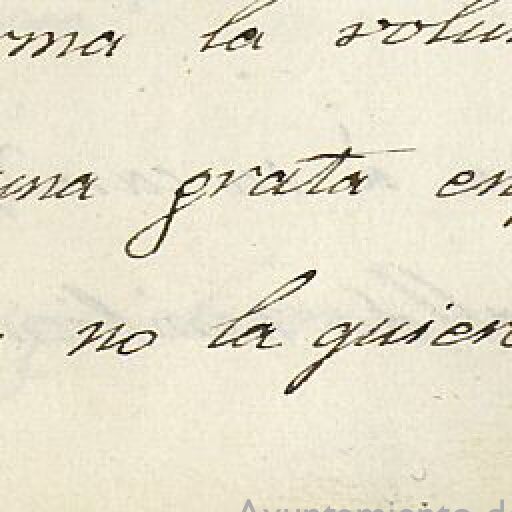 rma la volun
una grata en
no la quier
Ayuntamiento de